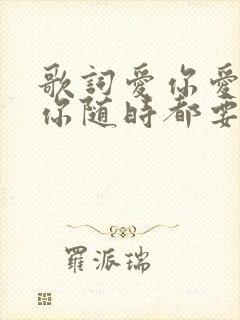 歌詞愛你愛
你随時都要
羅派瑞